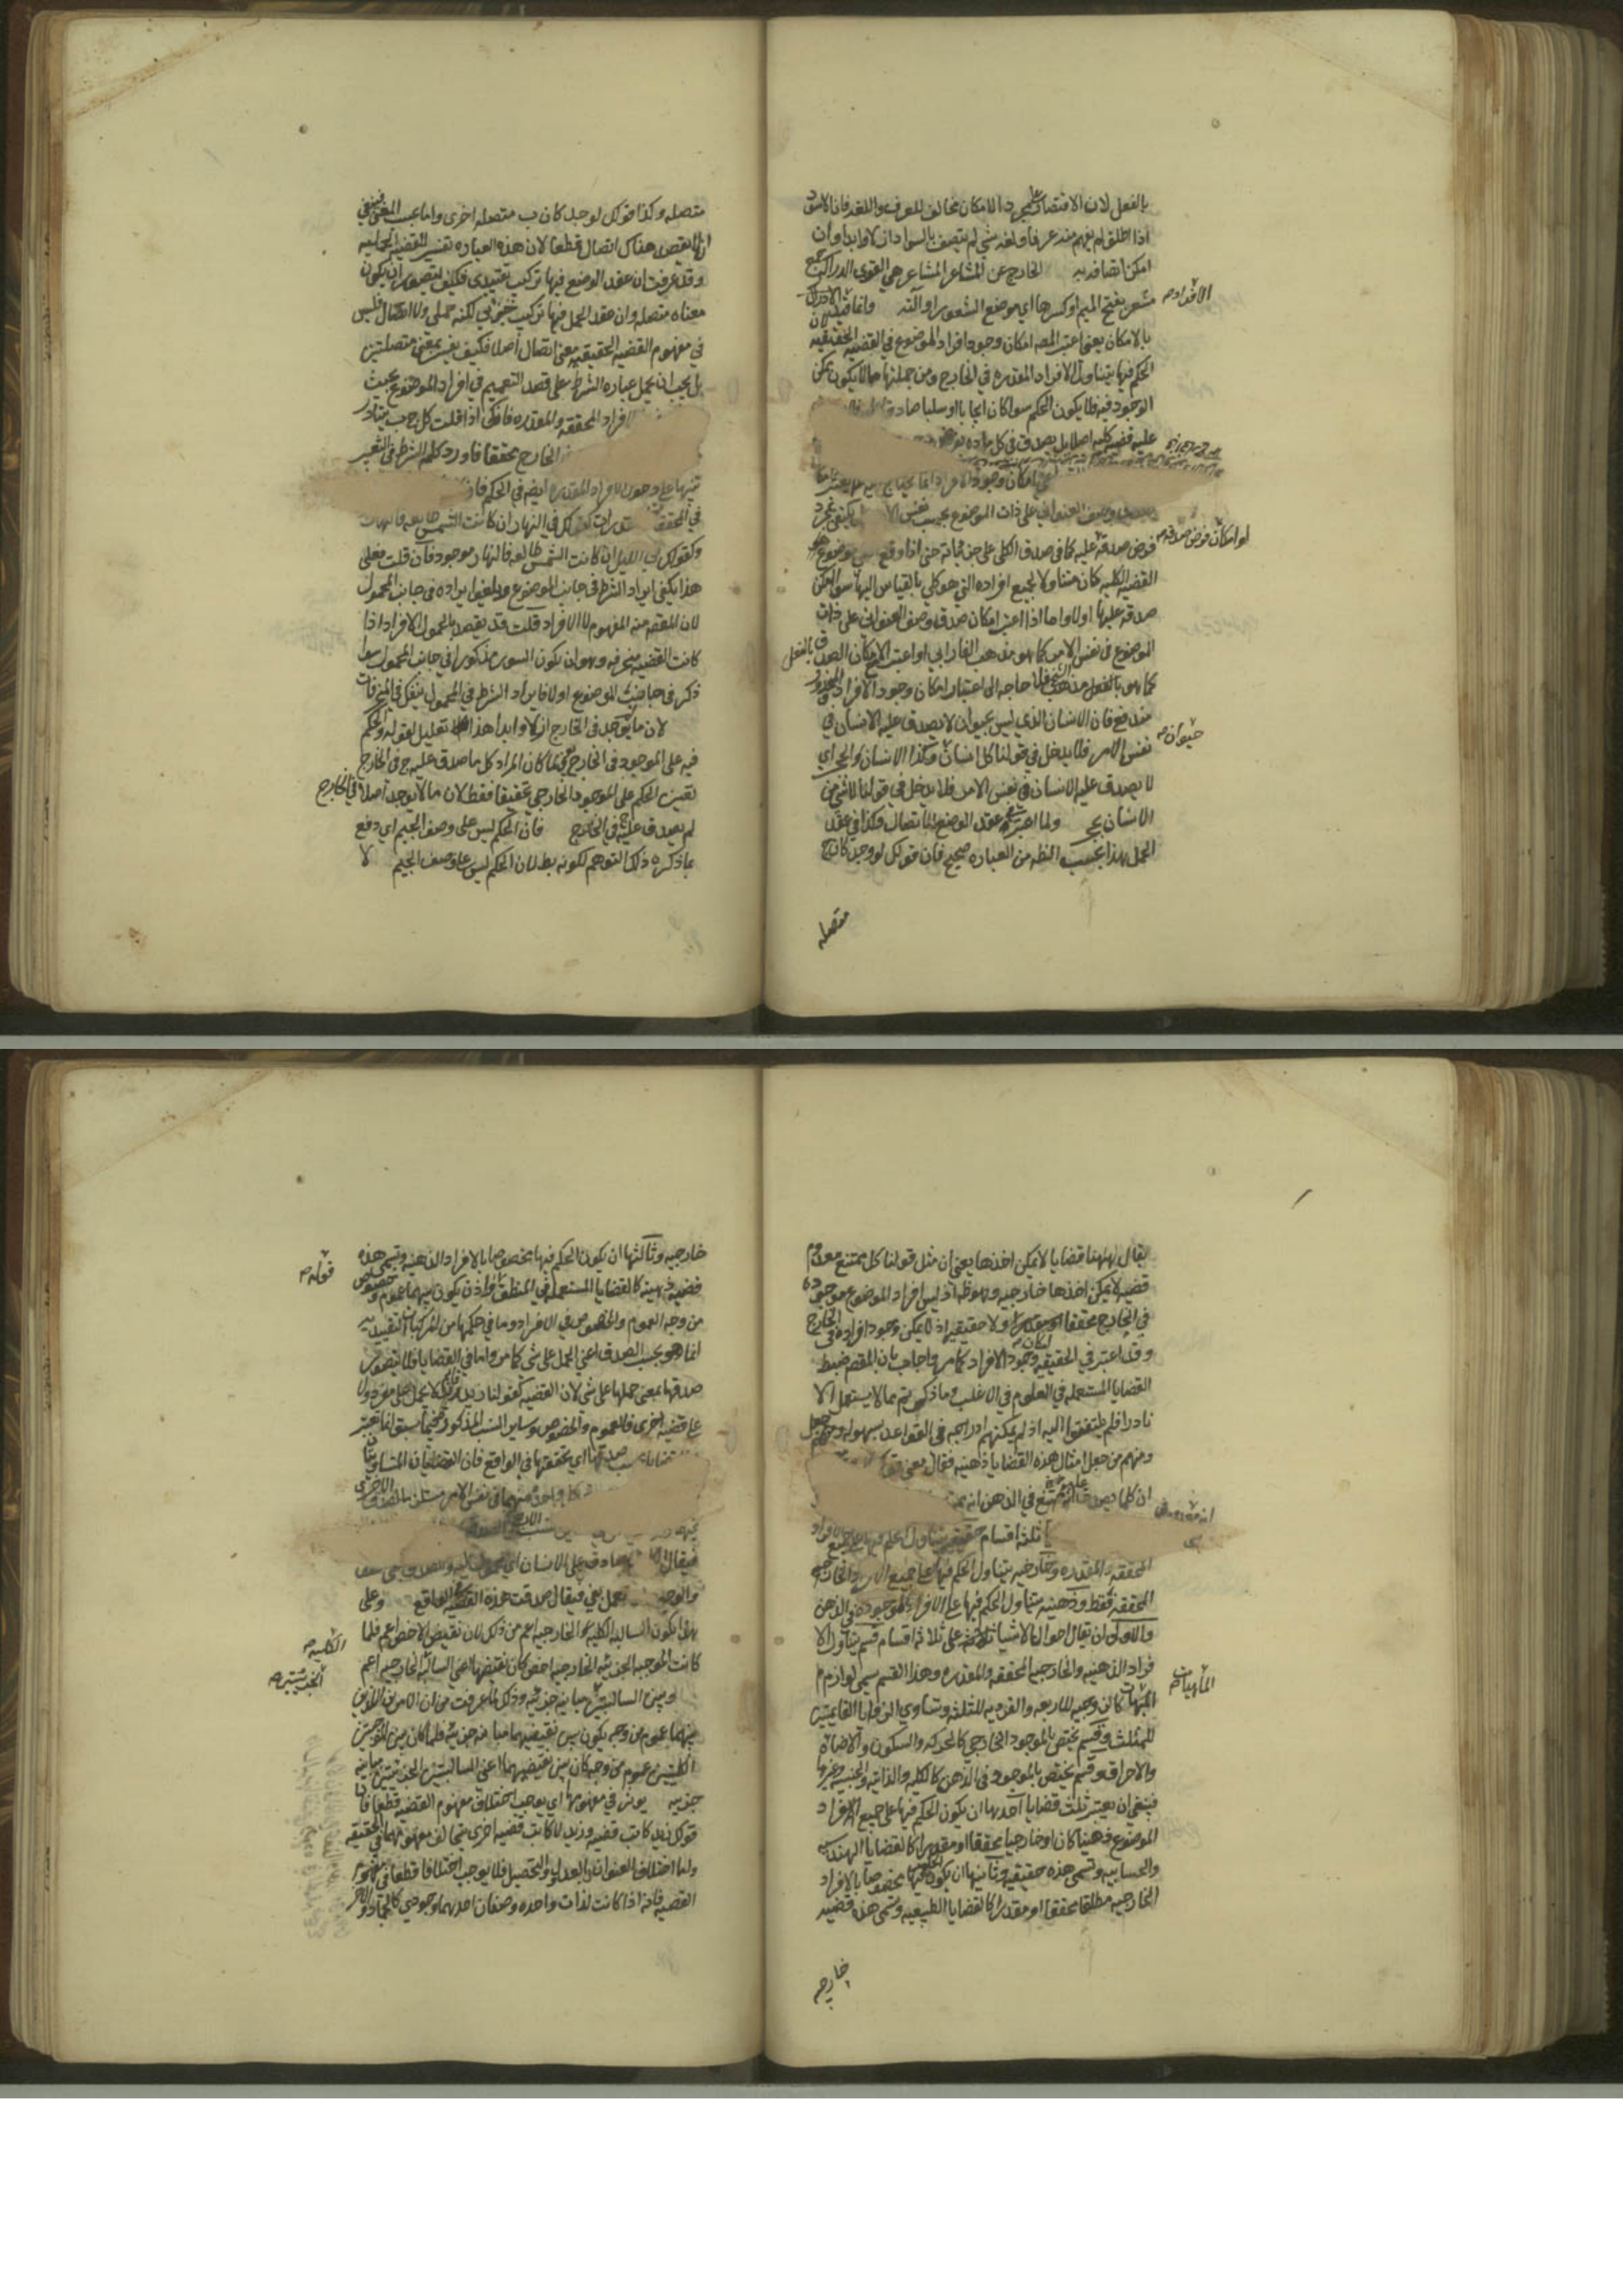 بالفعل لان الاقتصار على مجرد الامكان مخالف للعرف واللغه فان الاسود
اذا اطلق لم يفهم منه عرفا ولغه شي لم يتصف بالسواد ازلا وابدا وان
امكن اتصافه به الخارج عن المشاعر المشاعر هي القوى الدراكه جمع
مشعر بفتح الميم او كسرها اي موضع الشعور او آلته وانما قيد
الافراد
بالامكان يعني اعتبر المصه امكان وجود افراد الموضوع في القضيه الحقيقيه لان
الحكم فيها يتناول الافراد المقدره في الخارج ومن جملتها ما لا يكون ممكن
الوجود فيه فلا يكون الحكم سوا كان ايجابا او سلبا صادقا
عليه قضيه كليه اصلا بل يصدق في كل ماده
امكان وجود الافراد انما يحتاج اليه
وصف العنوان على ذات الموضوع بحسب نفس يكتفي بمجرد
فرض صدقه عليه كما في صدق الكلي على جزئياته حتى اذا وقع موضوع
لو امكان فرض صدقه
القضيه الكليه كان متناولا لجميع افراده التي هو كلي بالقياس اليها سوا امكن
صدقه عليها اولا واما اذا اعتبر امكان صدق وصف العنوان على ذات
الموضوع في نفس الامر كما هو مذهب الفارابي او اعتبر مع الامكان الصدق بالفعل
كما هو مذهب الشيخ فلا حاجه الى اعتبار امكان وجود الافراد
مندفع فان الانسان الذي ليس بحيوان لا يصدق عليه الانسان في
نفس الامر فلا يدخل في قولنا كل انسان وكذا الانسان والحجر اي
حيوان
لا يصدق عليه الانسان في نفس الامر فلا يدخل في قولنا لا شي من
الانسان بحجر ولما اعتبر في عقد الوضع الاتصال فكذا في عقد
الحمل هذا بحسب الظه من العباره صحيح فان قولك لو وجد كان ج
متصله
متصله وكذا قولك لو وجد كان ب متصله اخرى واما بحسب المعنى فينبغي
ان لا يقصد هناك اتصال قطعا لان هذه العباره تفسير للقضيه الحمليه
وقد عرفت ان عقد الوضع فيها تركيب تقييدي فكيف يتصور ان يكون
معناه متصله وان عقد الحمل فيها تركيب خبري لكنه حملي ولا اتصال فليس
في مفهوم القضيه الحقيقيه معنى اتصال اصلا فكيف يفسر بمعنى متصلتين
بل يجب ان يحمل عباره الشرط على قصد التعميم في افراد الموضوع بحيث
الافراد المحققه والمقدره فانك اذا قلت كل ج ب يتبادر
الخارج محققا فاورد كلمه الشرط في التفسير
تنبيها على دخول الافراد المقدره ايضه في الحكم
في المحقق كقولك في النهار ان كانت الشمس طالعه فالنهار
وكقولك في الليل ان كانت الشمس طالعه فالنهار موجود فان قلت فعلى
هذا يكفي ايراد الشرط في جانب الموضوع ويلغوا ايراده في جانب المحمول
لان المقصه منه المفهوم لا الافراد قلت قد يقصد بالمحمول الافراد اذا
كانت القضيه منحرفه وهو ان يكون السور مذكورا في جانب المحمول سوا
ذكر في جانب الموضوع اولا فايراد الشرط في المحمول ينفك في المنحرفات
لان ما لا يوجد في الخارج ازلا وابدا هذا تعليل لقوله والحكم
فيه على الموجود في الخارج يعني لما كان المراد كل ما صدق عليه ج في الخارج
تعين الحكم على الموجود الخارجي تحقيقا فقط لان ما لا يوجد اصلا في الخارج
لم يصدق عليه ج في الخارج فان الحكم ليس على وصف الجيم اي دفع
بما ذكره ذلك التوهم لكونه بطلان الحكم ليس على وصف الجيم لا
يقال ههنا قضايا لا يمكن اخذها يعني ان مثل قولنا كل ممتنع معدوم
قضيه لا يمكن اخذها خارجيه وهو ظه اذ ليس افراد الموضوع موجوده
في الخارج محققا او مقدرا ولا حقيقيه اذ لا يمكن وجود افراده في الخارج
وقد اعتبر في الحقيقيه امكان وجود الافراد كما مر واجاب بان المقصه ضبط
القضايا المستعمله في العلوم في الاغلب وما ذكرتم مما لا يستعمل الا
نادرا فلم يلتفتوا اليه اذ لم يمكنهم ادراجه في القواعد بسهوله
ومنهم من جعل امثال هذه القضايا ذهنيه فقال معنى قولنا
ان كلما يصدق عليه ممتنع في الذهن انه
ثلثه اقسام حقيقيه يتناول الحكم فيها جميع الافراد
المحققه والمقدره وخارجيه يتناول الحكم فيها جميع الافراد الخارجيه
المحققه فقط وذهنيه يتناول الحكم فيها على الافراد الموجوده في الذهن
والاولى ان يقال احوال الاشيا على ثلاثه اقسام قسم يتناول الا
فراد الذهنيه والخارجيه المحققه والمقدره وهذا القسم يسمى لوازم
الماهيات كالزوجيه للاربعه والفرديه للثلثه وتساوي الزوايا القايمتين
الماهيات
للمثلث وقسم يختص بالموجود الخارجي كالحركه والسكون والاضاة
والاحراق وقسم يختص بالموجود في الذهن كالكليه والذاتيه والجنسيه وغيرها
فينبغي ان يعتبر ثلث قضايا احدها ان يكون الحكم فيها على جميع الافراد
الموضوع ذهنيا كان او خارجيا محققا او مقدرا كالقضايا الهندسيه
والحسابيه وتسمى هذه حقيقيه وثانيها ان يكون الحكم فيها مخصوصا بالافراد
الخارجيه مطلقا محققا او مقدرا كالقضايا الطبيعيه وتسمى هذه قضيه
خارجيه
خارجيه وثالثها ان يكون الحكم فيها مخصوصا بالافراد الذهنيه وتسمى هذه
قضيه ذهنيه كالقضايا المستعمله في المنطق واذن يكون بينهما عموم وخصوص
قوله
من وجه العموم والخصوص في الافراد وما في حكمها من المركبات التقييديه
انما هو بحسب الصدق اعني الحمل على شي كما مر واما في القضايا فلا يتصور
صدقها بمعنى حملها على شي لان القضيه كقولنا زيد قايم لا يحمل على مفرد ولا
على قضيه اخرى فالعموم والخصوص وساير النسب المذكوره فيما سبق انما تعتبر
صدقها اي تحققها في الواقع فان القضيتان المتساويتان
واحد منهما في نفس الامر مستلزما لصدق الاخرى
فيقال صادق على الانسان اي محمول عليه
فيقال صدقت هذه القضيه في الواقع وعلى
هذا يكون السالبه الكليه الخارجيه اعم من ذلك لان نقيض الاخص اعم فلما
كانت الموجبه الجزئيه الخارجيه اخص كان نقيضها اعني السالبه الخارجيه اعم
الكليه
وبين السالبتين مباينه جزئيه وذلك لما عرفت من ان الامرين اللذين
الجزئيتين
بينهما عموم من وجه يكون بين نقيضيهما مباينه جزئيه فلما كان بين الموجبتين
الكليتين عموم من وجه كان بين نقيضيهما اعني السالبتين الجزئيتين مباينه
جزئيه يؤثر في مفهومها اي يوجب اختلاف مفهوم القضيه قطعا فان
قولك زيد كاتب قضيه وزيد لا كاتب قضيه اخرى يخالف مفهومهما في الحقيقه
واما اختلاف العنوان بالعدول والتحصيل فلا يوجب اختلافا قطعا في مفهوم
القضيه فانه اذا كانت لذات واحده وصفان احدهما وجودي كالجماد والاخر